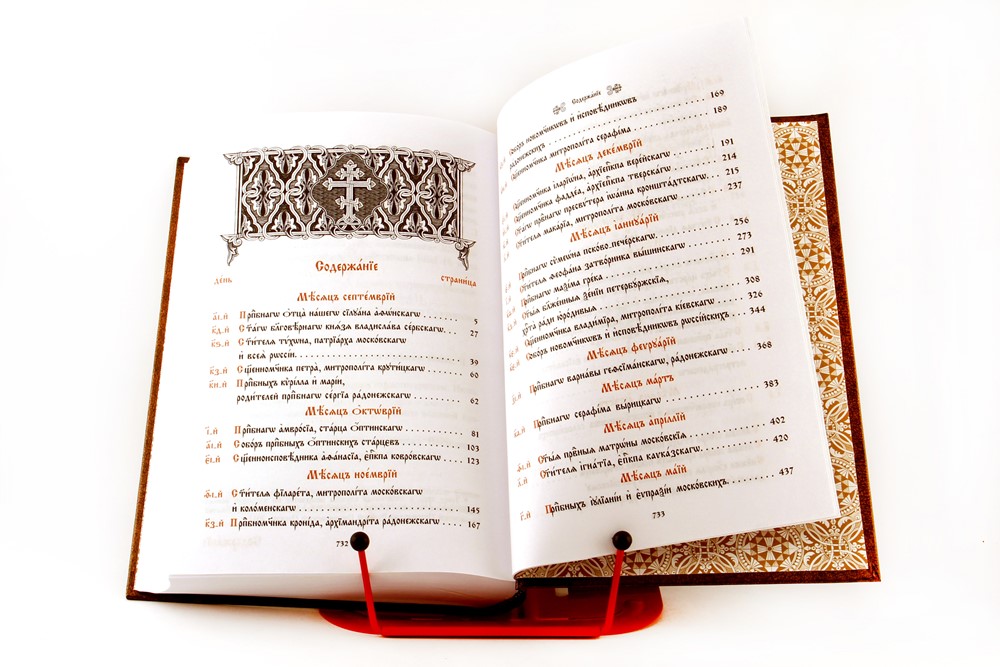 Содержа́нїе
де́нь страни́ца
Мѣ́сяцъ септе́мврїй
а҃і.й Прп҇бнагѡ ѻ҆тца̀ на́шегѡ сїлꙋа́на а҆ѳѡ́нскагѡ ..... 5
к҃д.й Ст҃а́гѡ бл҃говѣ́рнагѡ кнѧ́зѧ владисла́ва се́рбскагѡ.. 27
к҃ѕ.й Ст҃и́телѧ тѵ́хѡна, патрїа́рха моско́вскагѡ
и҆ всеѧ̀ рꙋссі́и. ..... 39
к҃з.й Сщ҃нном҃чика петра̀, митрополі́та крꙋти́цкагѡ .... 60
к҃и.й Прп҇бныхъ кѷрі́лла и҆ марі́и,
роди́телей прп҇бнагѡ се́ргїа ра́донежскагѡ ..... 62
Мѣ́сяцъ ѻ҆ктѡ́врїй
і҃.й Прп҇бнагѡ а҆мвро́сїа, ста́рца ѻ҆́птинскагѡ ..... 81
а҃і.й Собо́ръ прп҇бныхъ ѻ҆́птинскихъ ста́рцевъ ..... 103
є҃і.й Сщ҃нноисповѣ́дника а҆ѳана́сїа, є҆п҇кпа ковро́вскагѡ .... 123
Мѣ́сяцъ ное́мврїй
ѳ҃і.й Ст҃и́телѧ фїларе́та, митрополі́та моско́вскагѡ
и҆ коло́менскагѡ ..... 145
к҃з.й Прп҇бном҃чика крони́да, а҆рхїмандрі́та ра́донежскагѡ ... 167
732
Содержа́нїе
Собо́ръ новом҃чикѡвъ и҆ и҆сповѣ́дникѡвъ
ра́донежскихъ ..... 169
Сщ҃нном҃чика митрополі́та серафі́ма ..... 189
Мѣ́сяцъ деке́мврїй
Сщ҃нном҃чика і҆ларїѡ́на, а҆рхїе҆п҇кпа вере́йскагѡ .... 191
Сщ҃нном҃чика ѳадде́а, а҆рхїе҆п҇кпа тверска́гѡ ..... 214
Ст҃а́гѡ прв҃наго пресвѵ́тера і҆ѡа́нна кроншта́дтскагѡ. .. 215
Ст҃и́телѧ мака́рїа, митрополі́та моско́вскагѡ ..... 237
Мѣ́сяцъ і҆аннꙋа́рїй
Прп҇бнагѡ сѷмеѡ́на пско́во-пече́рскагѡ. ..... 256
Ст҃и́телѧ ѳеофа́на затво́рника вы́шинскагѡ ..... 273
Прп҇бнагѡ маѯі́ма гре́ка ..... 291
Ст҃ы́ѧ бл҃же́нныѧ ѯе́нїи петербꙋ́ржскїѧ,
хр҇та̀ ра́ди ю҆ро́дивыѧ ..... 308
Сщ҃нном҃чика влади́мїра, митрополі́та кі́евскагѡ .... 326
Собо́ръ новом҃чикѡвъ и҆ и҆сповѣ́дникѡвъ рѡссі́йскихъ .. 344
Мѣ́сяцъ феврꙋа́рїй
Прп҇бнагѡ варна́вы геѳсїма́нскагѡ, ра́донежскагѡ .... 368
Мѣ́сяцъ ма́ртъ
Прп҇бнагѡ серафі́ма вы́рицкагѡ ..... 383
Мѣ́сяцъ а҆прі́ллїй
ѳ҃і.й Ст҃ы́ѧ прв҃ныѧ матрѡ́ны моско́вскїѧ ..... 402
л҃.й Ст҃и́телѧ і҆гна́тїа, є҆п҇кпа кавка́зскагѡ. ..... 420
Мѣ́сяцъ ма́їй
Прп҇бныхъ і҆ꙋлїа́нїи и҆ є҆ѵпраѯі́и моско́вскихъ. ..... 437
733